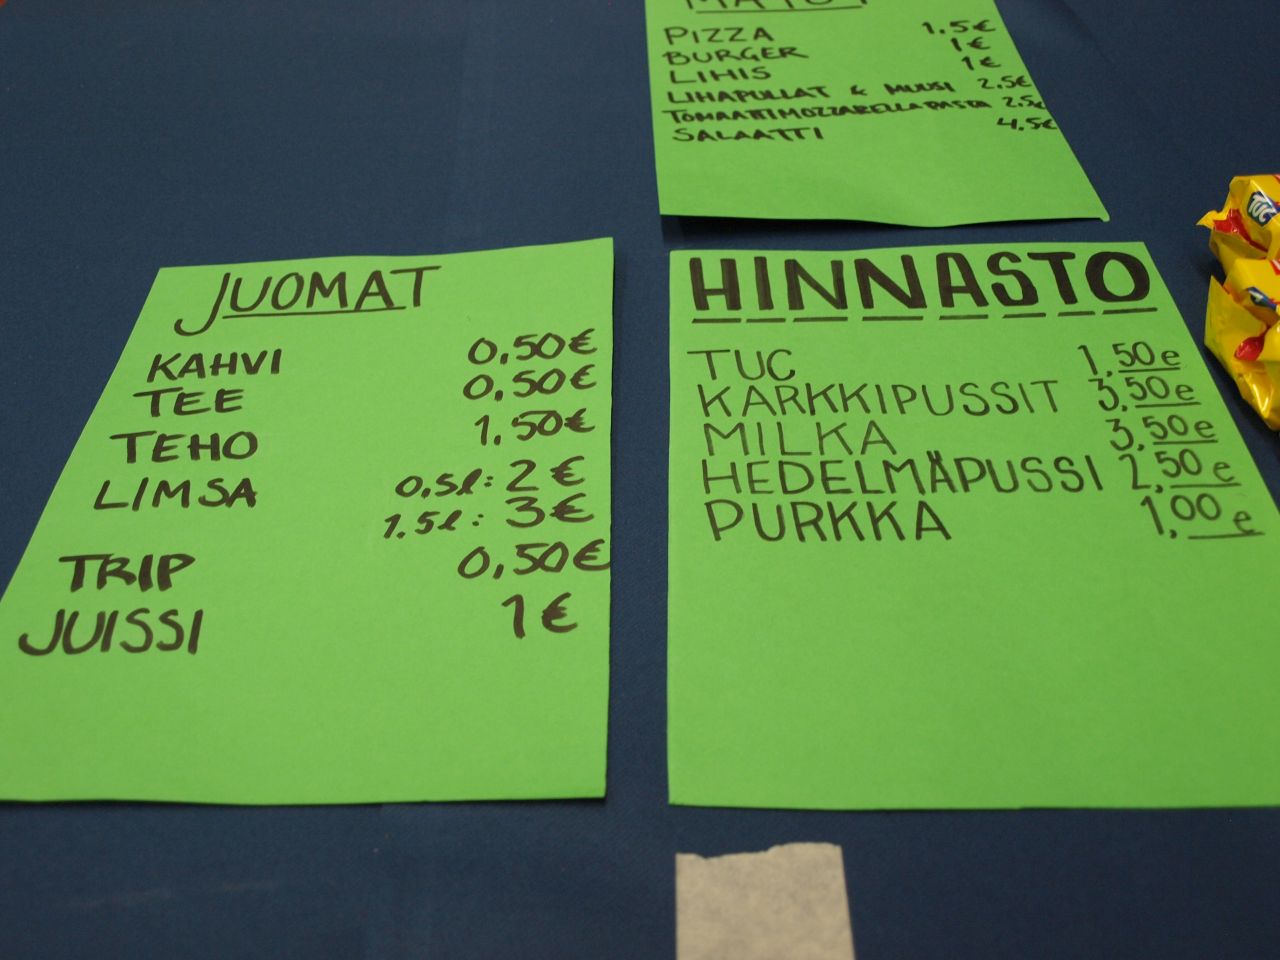 PIZZA 1.5€
BURGER 1€
LIHIS 1€
LIHAPULLAT & MUUSI 2.5€
TOMAATTIMOZZARELLAPASTA 2.5€
SALAATTI 4.5€
JUOMAT
KAHVI 0,50€
TEE 0,50€
TEHO 1,50€
LIMSA 0,5l: 2€
1.5l: 3€
TRIP 0,50€
JUISSI 1€
HINNASTO
TUC 1,50e
KARKKIPUSSIT 3,50e
MILKA 3,50e
HEDELMÄPUSSI 2,50e
PURKKA 1,00e
TUC